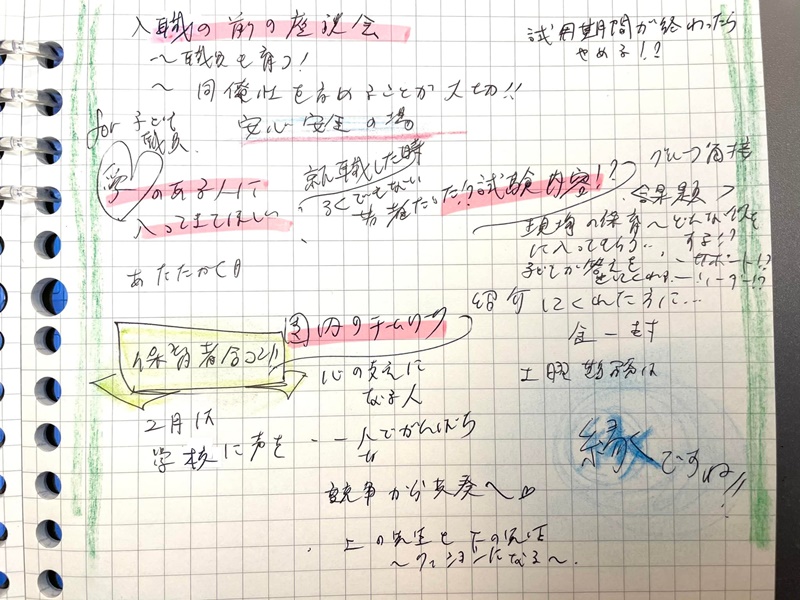 入職の前の座談会
〜職員も育つ!
〜同僚性を高めることが大切!!
試用期間が終わったら
やめる!?
for 子ども
職員
安心安全の場
愛のある人に
入ってきてほしい
就職した時
ろくでもない
若者だった!?
試験内容!?
グループ面接
現場の保育
〜どんな
に入ってもらう…
する!?
子どもが答えを
サポート!?
リーダー!?
あたたかく
紹介してくれた方に…
金一封
土曜勤務は
園内のチームワーク
保育者合コン!!
心の支えに
なる人
2月は
学校に声を
一人でがんばら
競争から共奏へ♡
上の先生と下の先生
〜クッションになる〜
縁ですね!!